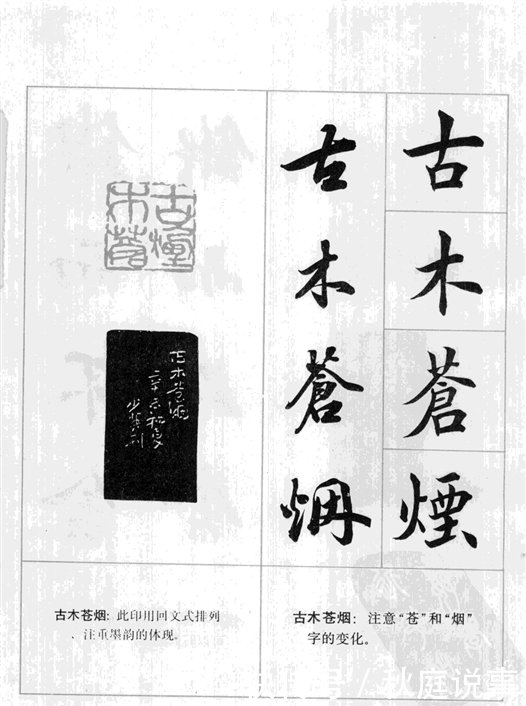 古木蒼煙
古木蒼烟
古木蒼煙
古木苍烟
古木苍烟：此印用回文式排列
、注重墨韵的体现。
古木苍烟：注意“苍”和“烟”
字的变化。
快传号 / 秋庭说事